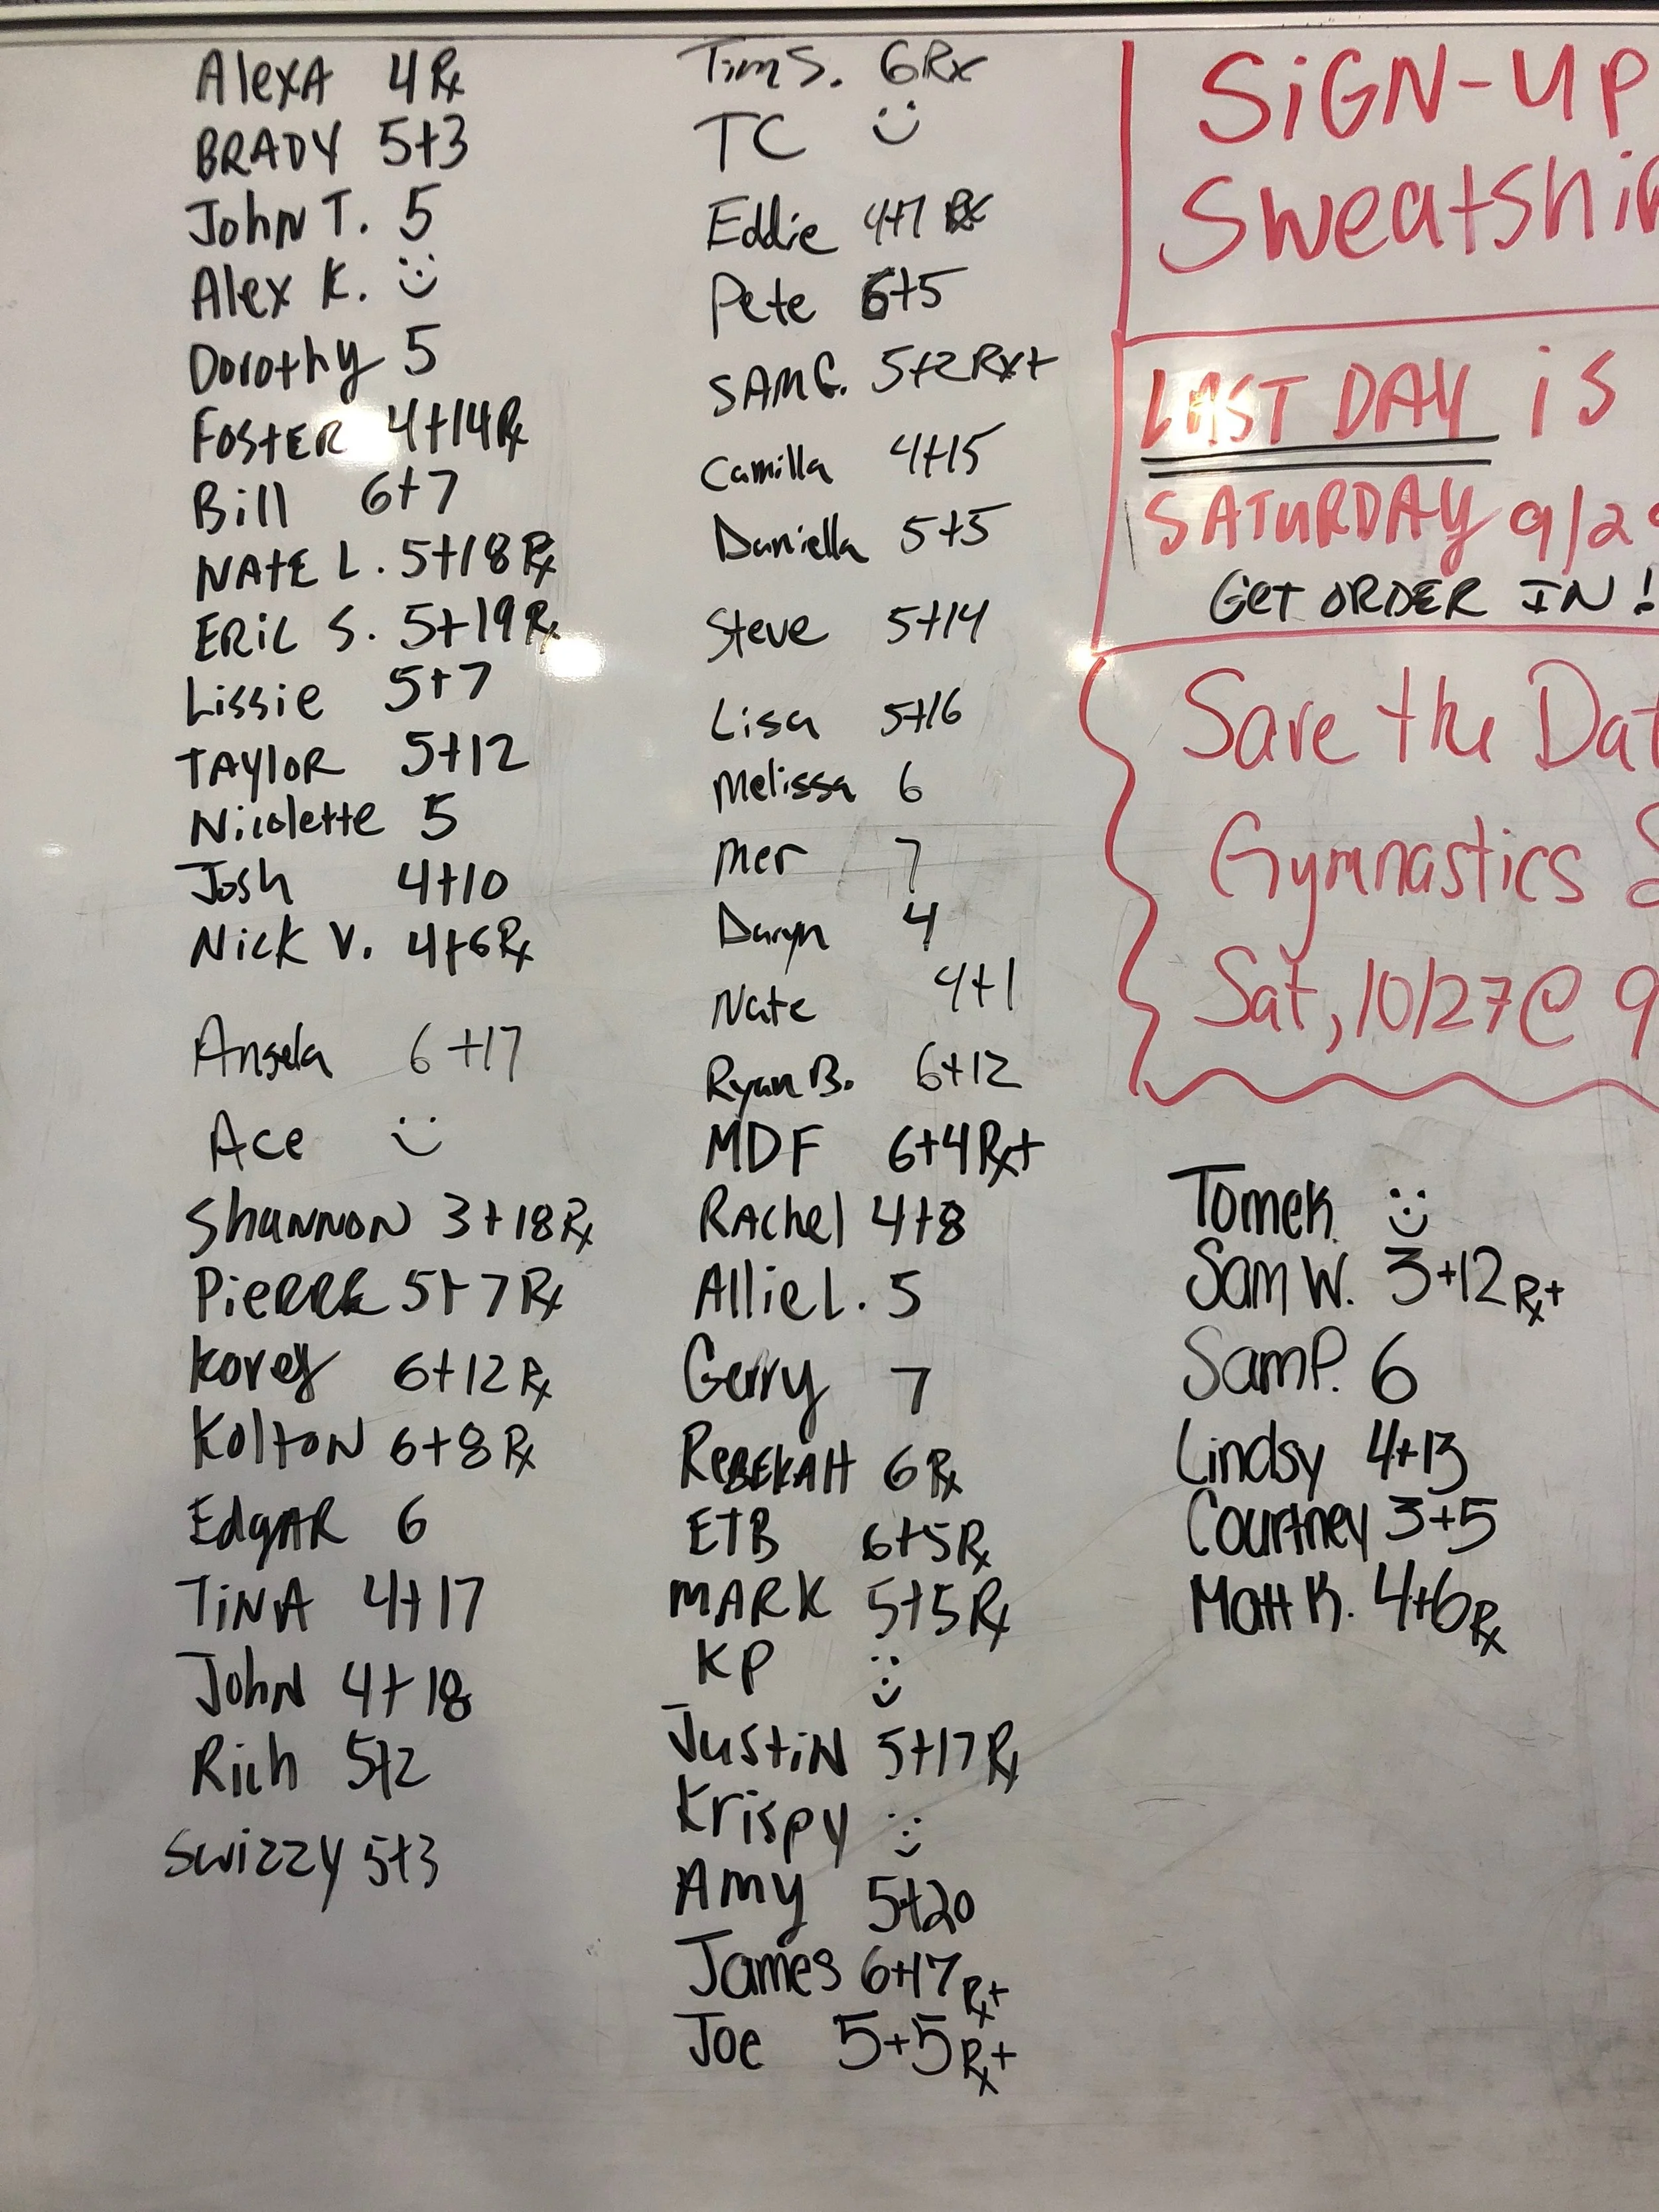 Alexa 4 Rx
BRADY 5+3
John T. 5
Alex K. :)
Dorothy 5
Foster 4+14 Rx
Bill 6+7
Nate L. 5+18 Rx
Eric S. 5+19 Rx
Lissie 5+7
Taylor 5+12
Nicolette 5
Josh 4+10
Nick V. 4+6 Rx
Angela 6+17
Ace :)
Shannon 3+18 Rx
Pierre 5+7 Rx
Korey 6+12 Rx
Kolton 6+8 Rx
Edgar 6
Tina 4+17
John 4+18
Rich 5+2
Swizzy 5+3
Tim S. 6 Rx
TC :)
Eddie 4+7 Rx
Pete 6+5
Sam C. 5+2 Rx+
Camilla 4+15
Daniella 5+5
Steve 5+14
Lisa 5+16
Melissa 6
Mer 7
Daryn 4
Nate 4+1
Ryan B. 6+12
MDF 6+4 Rx+
Rachel 4+8
Allie L. 5
Gerry 7
Rebekah 6 Rx
ETB 6+5 Rx
MARK 5+5 Rx
KP :)
Justin 5+17 Rx
Krispy :)
Amy 5+20
James 6+17 Rx+
Joe 5+5 Rx+
SiGN-UP
Sweatshi
LAST DAY is
SATURDAY 9/2
GET ORDER IN!
Save the Dat
Gymnastics
Sat, 10/27 @ 9
Tomek :)
Sam W. 3+12 Rx+
Sam P. 6
Lindsy 4+13
Courtney 3+5
Matt K. 4+6 Rx